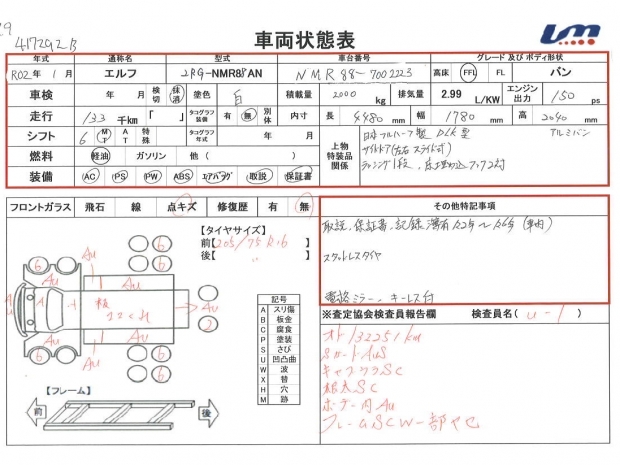 417292B
車両状態表
年式 通称名 型式 車台番号 グレード 及び ボディ形状
R02年 1月 エルフ 2RG-NMR88AN NMR88-7002223 高床 FFL FL バン
車検 年 月 検切 抹消 塗色 白 積載量 2000 kg 排気量 2.99 L/KW エンジン出力 150 ps
走行 133 千km 「 」 タコグラフ装備 有 無 別体 内寸 長 4480 mm 幅 1780 mm 高 2040 mm
シフト 6 MT AT 特殊 タコグラフ年式 年 月 上物特装品関係 日本フルハーフ製 アルミバン
燃料 軽油 ガソリン 他 ( ) サイドドア(左右スライド式)
装備 AC PS PW ABS エアバッグ 取説 保証書 ラッシング1段、床
フロントガラス 飛石 線 点キズ 修復歴 有 無 その他特記事項
【タイヤサイズ】 取説、保証書、記録簿有 R2年～R6年 (車内)
前【205/75R16 】
後【 〃 】 スタッドレスタイヤ
電格ミラー、キーレス付
6 6 6 6 6 6 2 2
Au Au Au Au Au Au
記号
A スリ傷
B 板金
C 腐食
P 塗装
S さび
U 凹凸曲
W 波
X 替
H 穴
M 跡
※査定協会検査員報告欄 検査員名( u-1 )
オド132251km
シートAuS
キャブウラSC
根太SC
ボデー内Au
フレームSCW一部ヤセ
【フレーム】
前 後